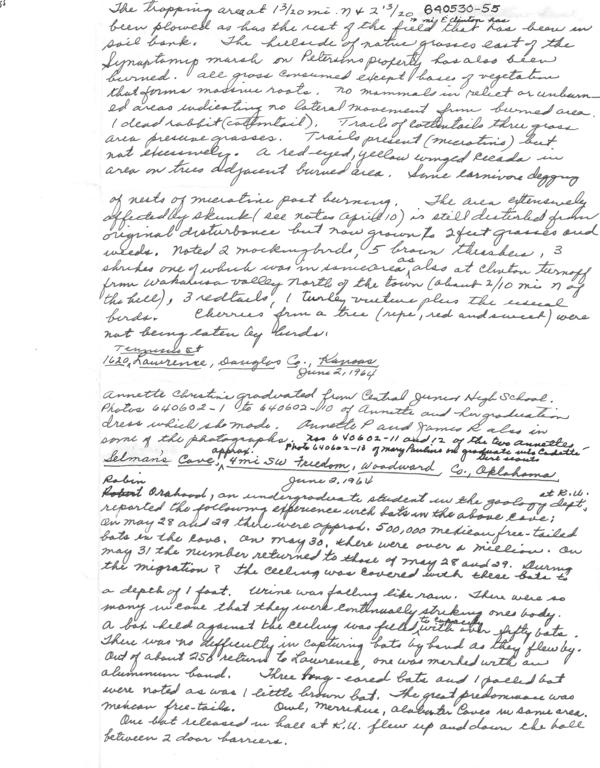 The trapping area at 1 3/20 mi. N & 2 13/20 640530-55
in mi E Clinton has
been plowed as has the rest of the field that has been in
soil bank. The hillside of native grasses east of the
Synaptomys marsh on Petersons property has also been
burned. All grass consumed except bases of vegetation
that forms massive roots. No mammals in relict or unburn-
ed areas indicating no lateral movement from burned area.
1 dead rabbit (cottontail). Trails of cottontails thru grass
area presume grasses. Trails present (microtine) but
not excessively. A red-eyed, yellow winged cicada in
area on trees adjacent burned area. Some carnivore digging
of nests of microtine post burning. The area extensively
affected by skunk (see notes April 10) is still disturbed from
original disturbance but now grown to 2 feet grasses and
weeds. Noted 2 mockingbirds, 5 brown thrashers, 3
shrikes one of which was in same area, as also at Clinton turnoff
from Wakarusa valley north of the town (about 2/10 mi n of
the hell), 3 redtails, 1 turkey vulture plus the usual
birds. Cherries from a tree (ripe, red and sweet) were
not being eaten by birds.
Tennessee St
1620, Lawrence, Douglas Co., Kansas
June 2, 1964
Annette Christine graduated from Central Junior High School.
Photos 640602-1 to 640602-10 of Annette and her graduation
dress which she made. Annette P and James R also in
some of the photographs. Nos 640602-11 and 12 of the two Annettes
Photo 640602-13 of Mary Pauline on graduate into Cadette
Girl scouts
Selman's Cave, approx. 4 mi SW Freedom, Woodward Co., Oklahoma
June 2, 1964
Robin
Robert Orahood, an undergraduate student in the zoology dept. at K.U.
reported the following experience with bats in the above cave:
On May 28 and 29 there were approx. 500,000 mexican free-tailed
bats in the cave. On May 30, there were over a million. On
May 31 the number returned to those of May 28 and 29. During
the migration? the ceiling was covered with these bats to
a depth of 1 foot. Urine was falling like rain. There were so
many in cave that they were continually striking ones body.
A box held against the ceiling was filled to capacity with over fifty bats.
There was no difficulty in capturing bats by hand as they flew by.
Out of about 250 return to Lawrence, one was marked with an
aluminum band. Three long-eared bats and 1 palled bat
were noted as was 1 little brown bat. The great predominace was
mexican free-tails. Owl, Merrihue, Alabaster Caves in same area.
One bat released in hall at K.U. flew up and down the hall
between 2 door barriers.